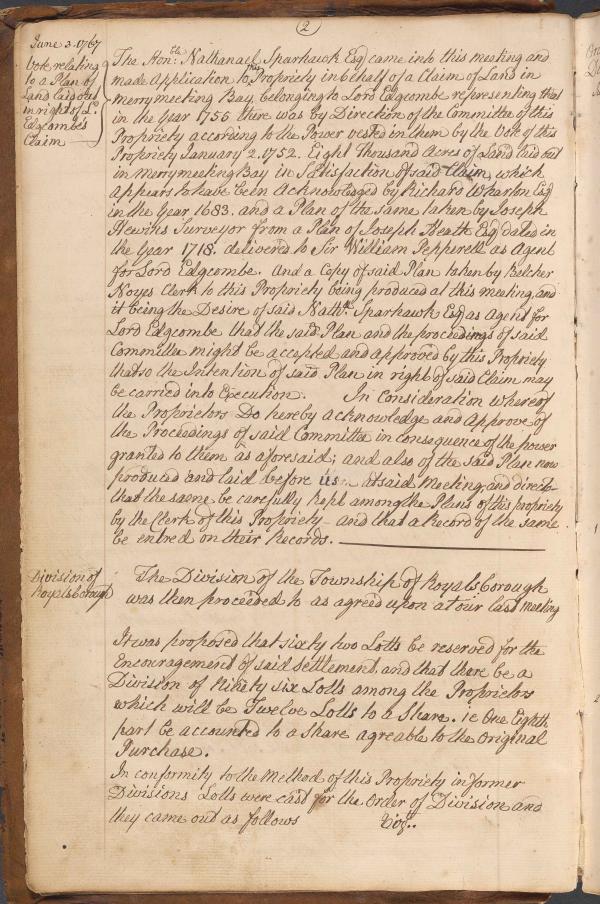 2
June 3. 1767
Vote relating
to a Plan of
Land laid out
in right of Ld.
Edgcombe's
Claim
The Honble. Nathanael Sparhawk Esq came into this meeting and
made Application to this Propriety in behalf of a Claim of Land in
merrymeeting Bay belonging to Lord Edgcombe representing that
in the Year 1756 there was by Direction of the Committee of this
Propriety according to the Power vested in them by the Vote of this
Propriety January 2. 1752. Eight Thousand Acres of Land laid out
in Merrymeeting Bay in Satisfaction of said Claim, which
appears to have been Acknowledged by Richard Wharton Esq
in the Year 1683. and a Plan of the same taken by Joseph
Hewins Surveyor from a Plan of Joseph Heath Esq dated in
the Year 1718. delivered to Sir William Pepperell as Agent
for Lord Edgcombe. And a Copy of said Plan taken by Belcher
Noyes Clerk to this Propriety being produced at this meeting, and
it being the Desire of said Nathl. Sparhawk Esq as Agent for
Lord Edgcombe that the said Plan and the proceedings of said
Committee might be accepted and approved by this Propriety
that so the Intention of said Plan in right of said Claim may
be carried into Execution. In Consideration whereof
the Proprietors Do hereby acknowledge and Approve of
the Proceedings of said Committee in consequence of the power
granted to them as aforesaid; and also of the said Plan now
produced and laid before us. at said Meeting, and direct
that the same be carefully kept among the Plans of this propriety
by the Clerk of this Propriety and that a Record of the same
be entred on their Records.
Division of
Royalsborough
The Division of the Township of Royalsborough
was then proceeded to as agreed upon at our last meeting
It was proposed that sixty two Lotts be reserved for the
Encouragement of said Settlement, and that there be a
Division of Ninety six Lotts among the Proprietors
which will be Twelve Lotts to a Share. ie One Eighth
part be accounted to a Share agreable to the Original
Purchase.
In conformity to the Method of this Propriety in former
Divisions Lotts were cast for the Order of Division and
they came out as follows Viz..